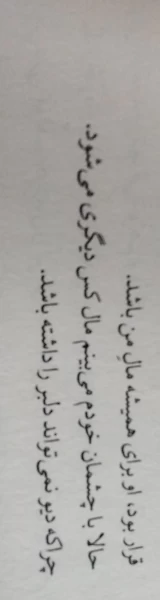 قرار بود، او برای همیشه مالِ من باشد..
حالا با چشمان خودم می‌بینم مال کس دیگری می‌شود..
چراکه دیو نمی‌تواند دلبر را داشته باشد..